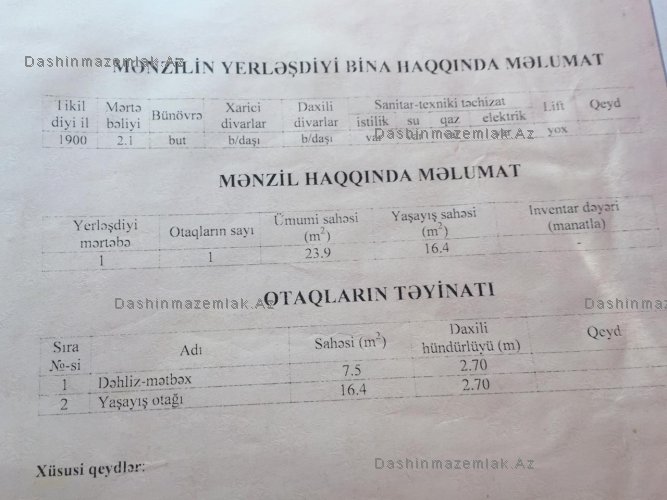 Dashinmazemlak.Az
MƏNZİLİN YERLƏŞDİYİ BİNA HAQQINDA MƏLUMAT
Tikil diyi il Mərtə bəliyi Bünövrə Xarici divarlar Daxili divarlar Sanitar-texniki təchizat istilik su qaz elektrik Lift Qeyd
Dashinmazemlak.Az
1900 2.1 but b/daşı b/daşı var yox
MƏNZİL HAQQINDA MƏLUMAT
Yerləşdiyi mərtəbə Otaqların sayı Ümumi sahəsi (m²) Yaşayış sahəsi (m²) İnventar dəyəri (manatla)
1 1 23.9 16.4 -
Dashinmazemlak.Az
OTAQLARIN TƏYİNATI
Dashinmazemlak.Az
Sıra №-si Adı Sahəsi (m²) Daxili hündürlüyü (m) Qeyd
1 Dəhliz-mətbəx 7.5 2.70
2 Yaşayış otağı 16.4 2.70
Xüsusi qeydlər:
Dashinmazemlak.Az